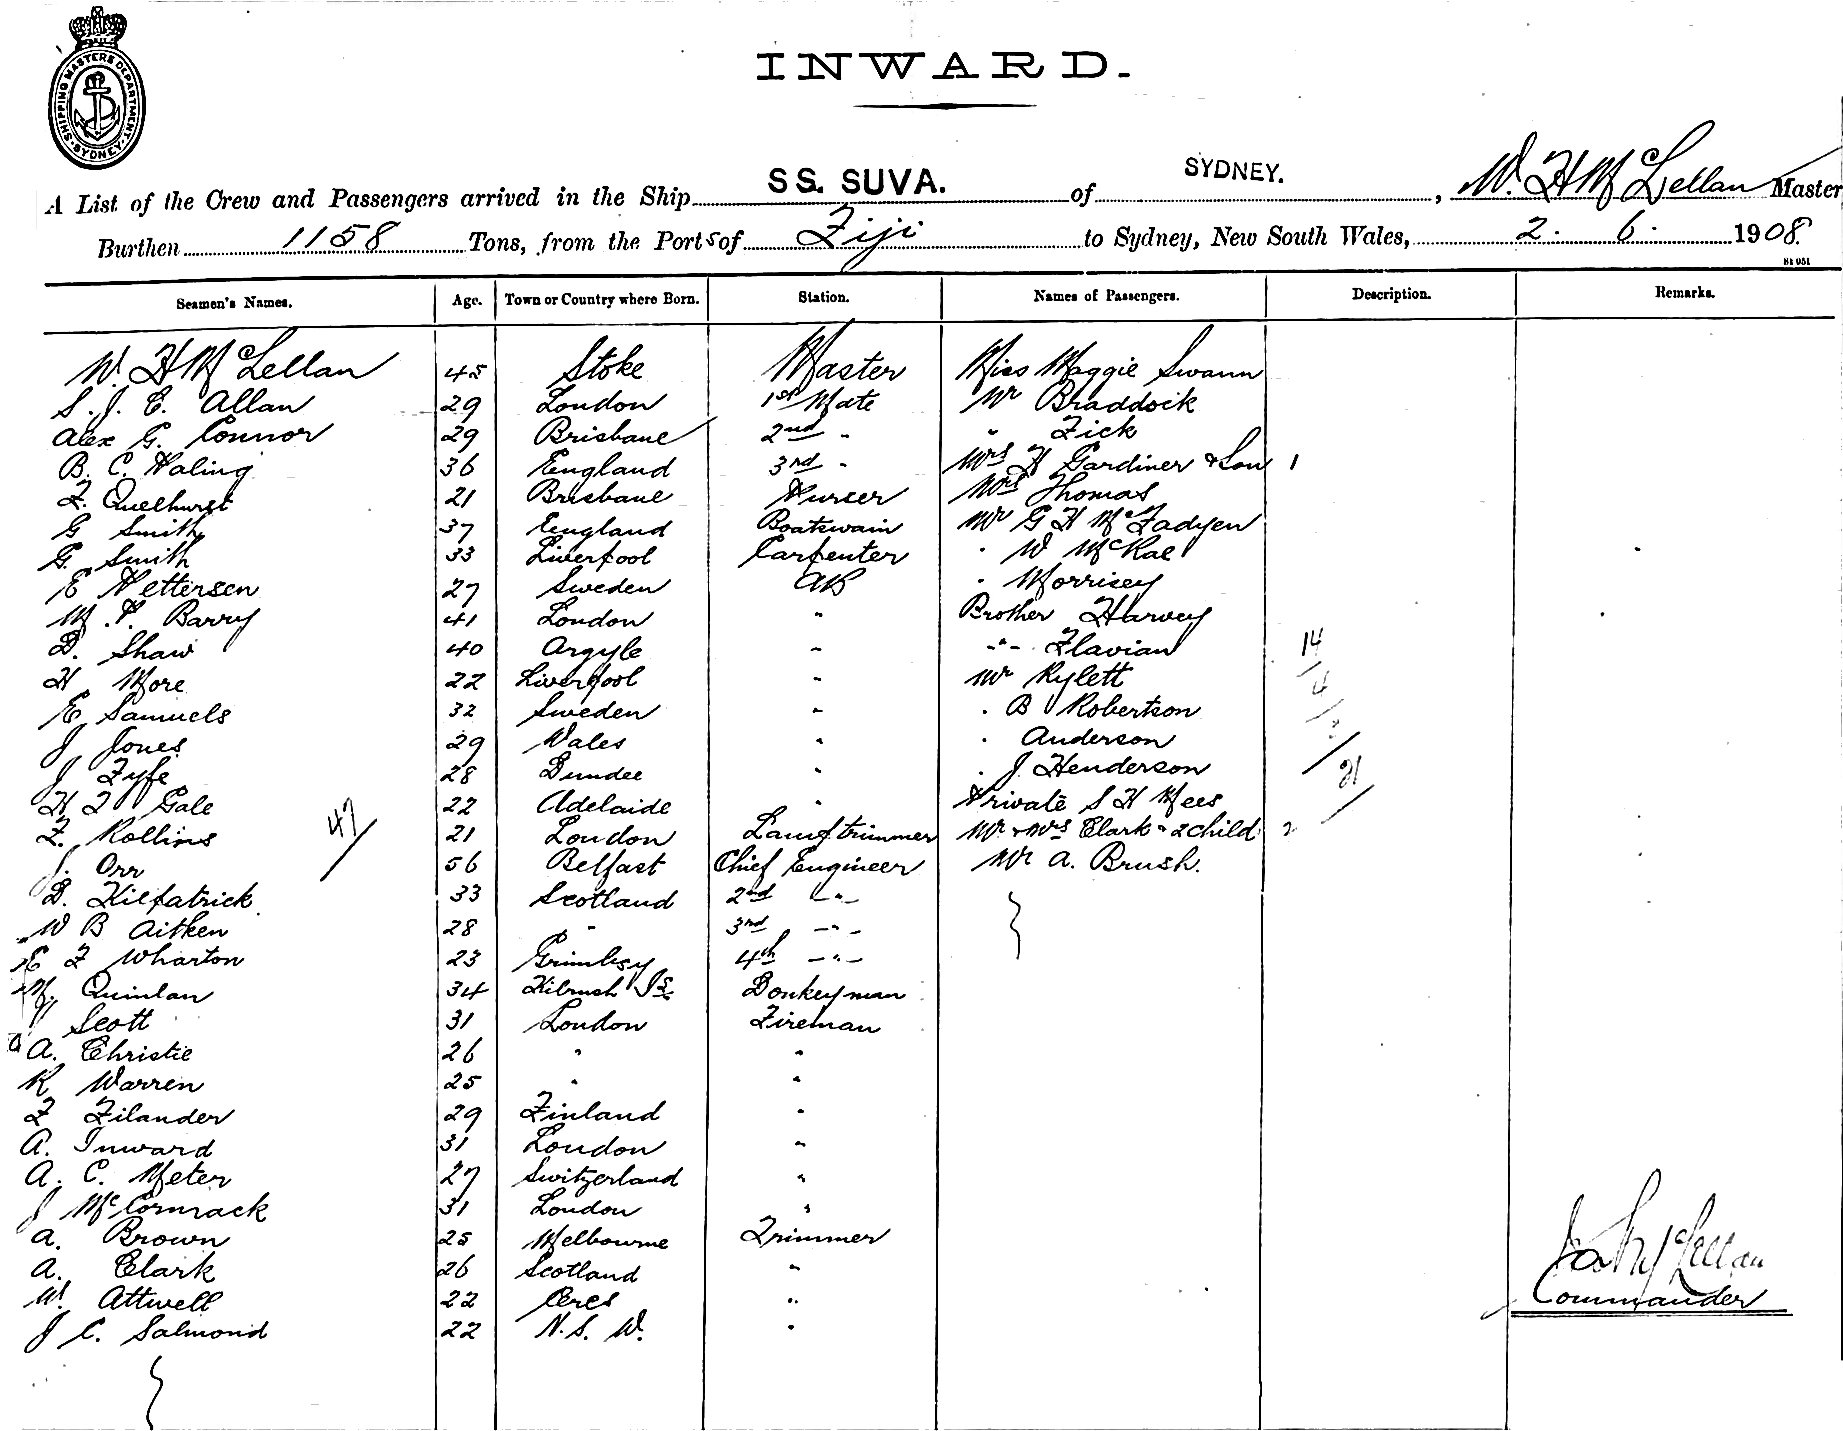 SHIPPING MASTERS DEPARTMENT. SYDNEY.
INWARD.
A List of the Crew and Passengers arrived in the Ship SS. SUVA. of SYDNEY. , W. H McLellan Master
Burthen 1158 Tons, from the Ports of Fiji to Sydney, New South Wales, 2. 6. 1908.
Seamen's Names. Age. Town or Country where Born. Station. Names of Passengers. Description. Remarks.
W. H McLellan 45 Stoke Master Miss Maggie Swann
S. J. E. Allan 29 London 1st Mate Mr Braddock
Alex G. Connor 29 Brisbane 2nd " " Fick
B. C. Haling 36 England 3rd " Mrs H Gardiner & Son 1
F. Quelhurst 21 Brisbane Purser Mrs Thomas
G Smith 37 England Boatswain Mr G H McFadyen
G. Smith 33 Liverpool Carpenter " W McRae
E Pettersen 27 Sweden AB " Morrisey
M. P. Barry 41 London " Brother Harvey
D. Shaw 40 Argyle " -"- Flavian 14
H More 22 Liverpool " Mr Rylett 4
E Samuels 32 Sweden " " B Robertson
J Jones 29 Wales " " Anderson
J Fyfe 28 Dundee " " J. Henderson 21
H F Gale 22 Adelaide " Private S H Mees
F. Rollins 47 21 London Lamptrimmer Mr & Mrs Clark & 2 child 2
J. Orr 56 Belfast Chief Engineer Mr A. Brush.
D. Kilpatrick 33 Scotland 2nd -"-
W B Aitken 28 " 3rd -"-
E F Wharton 23 Grimbsy 4th -"-
M Quinlan 34 Kilrush Is Donkeyman
Scott 31 London Fireman
A. Christie 26 " "
R Warren 25 " "
F Filander 29 Finland "
A. Inward 31 London "
A. C. Meter 27 Switzerland "
J McCormack 31 London "
A. Brown 25 Melbourne Trimmer
A. Clark 26 Scotland "
W. Attwell 22 Ceres "
J C. Salmond 22 N. S. W. "
McLellan
Commander